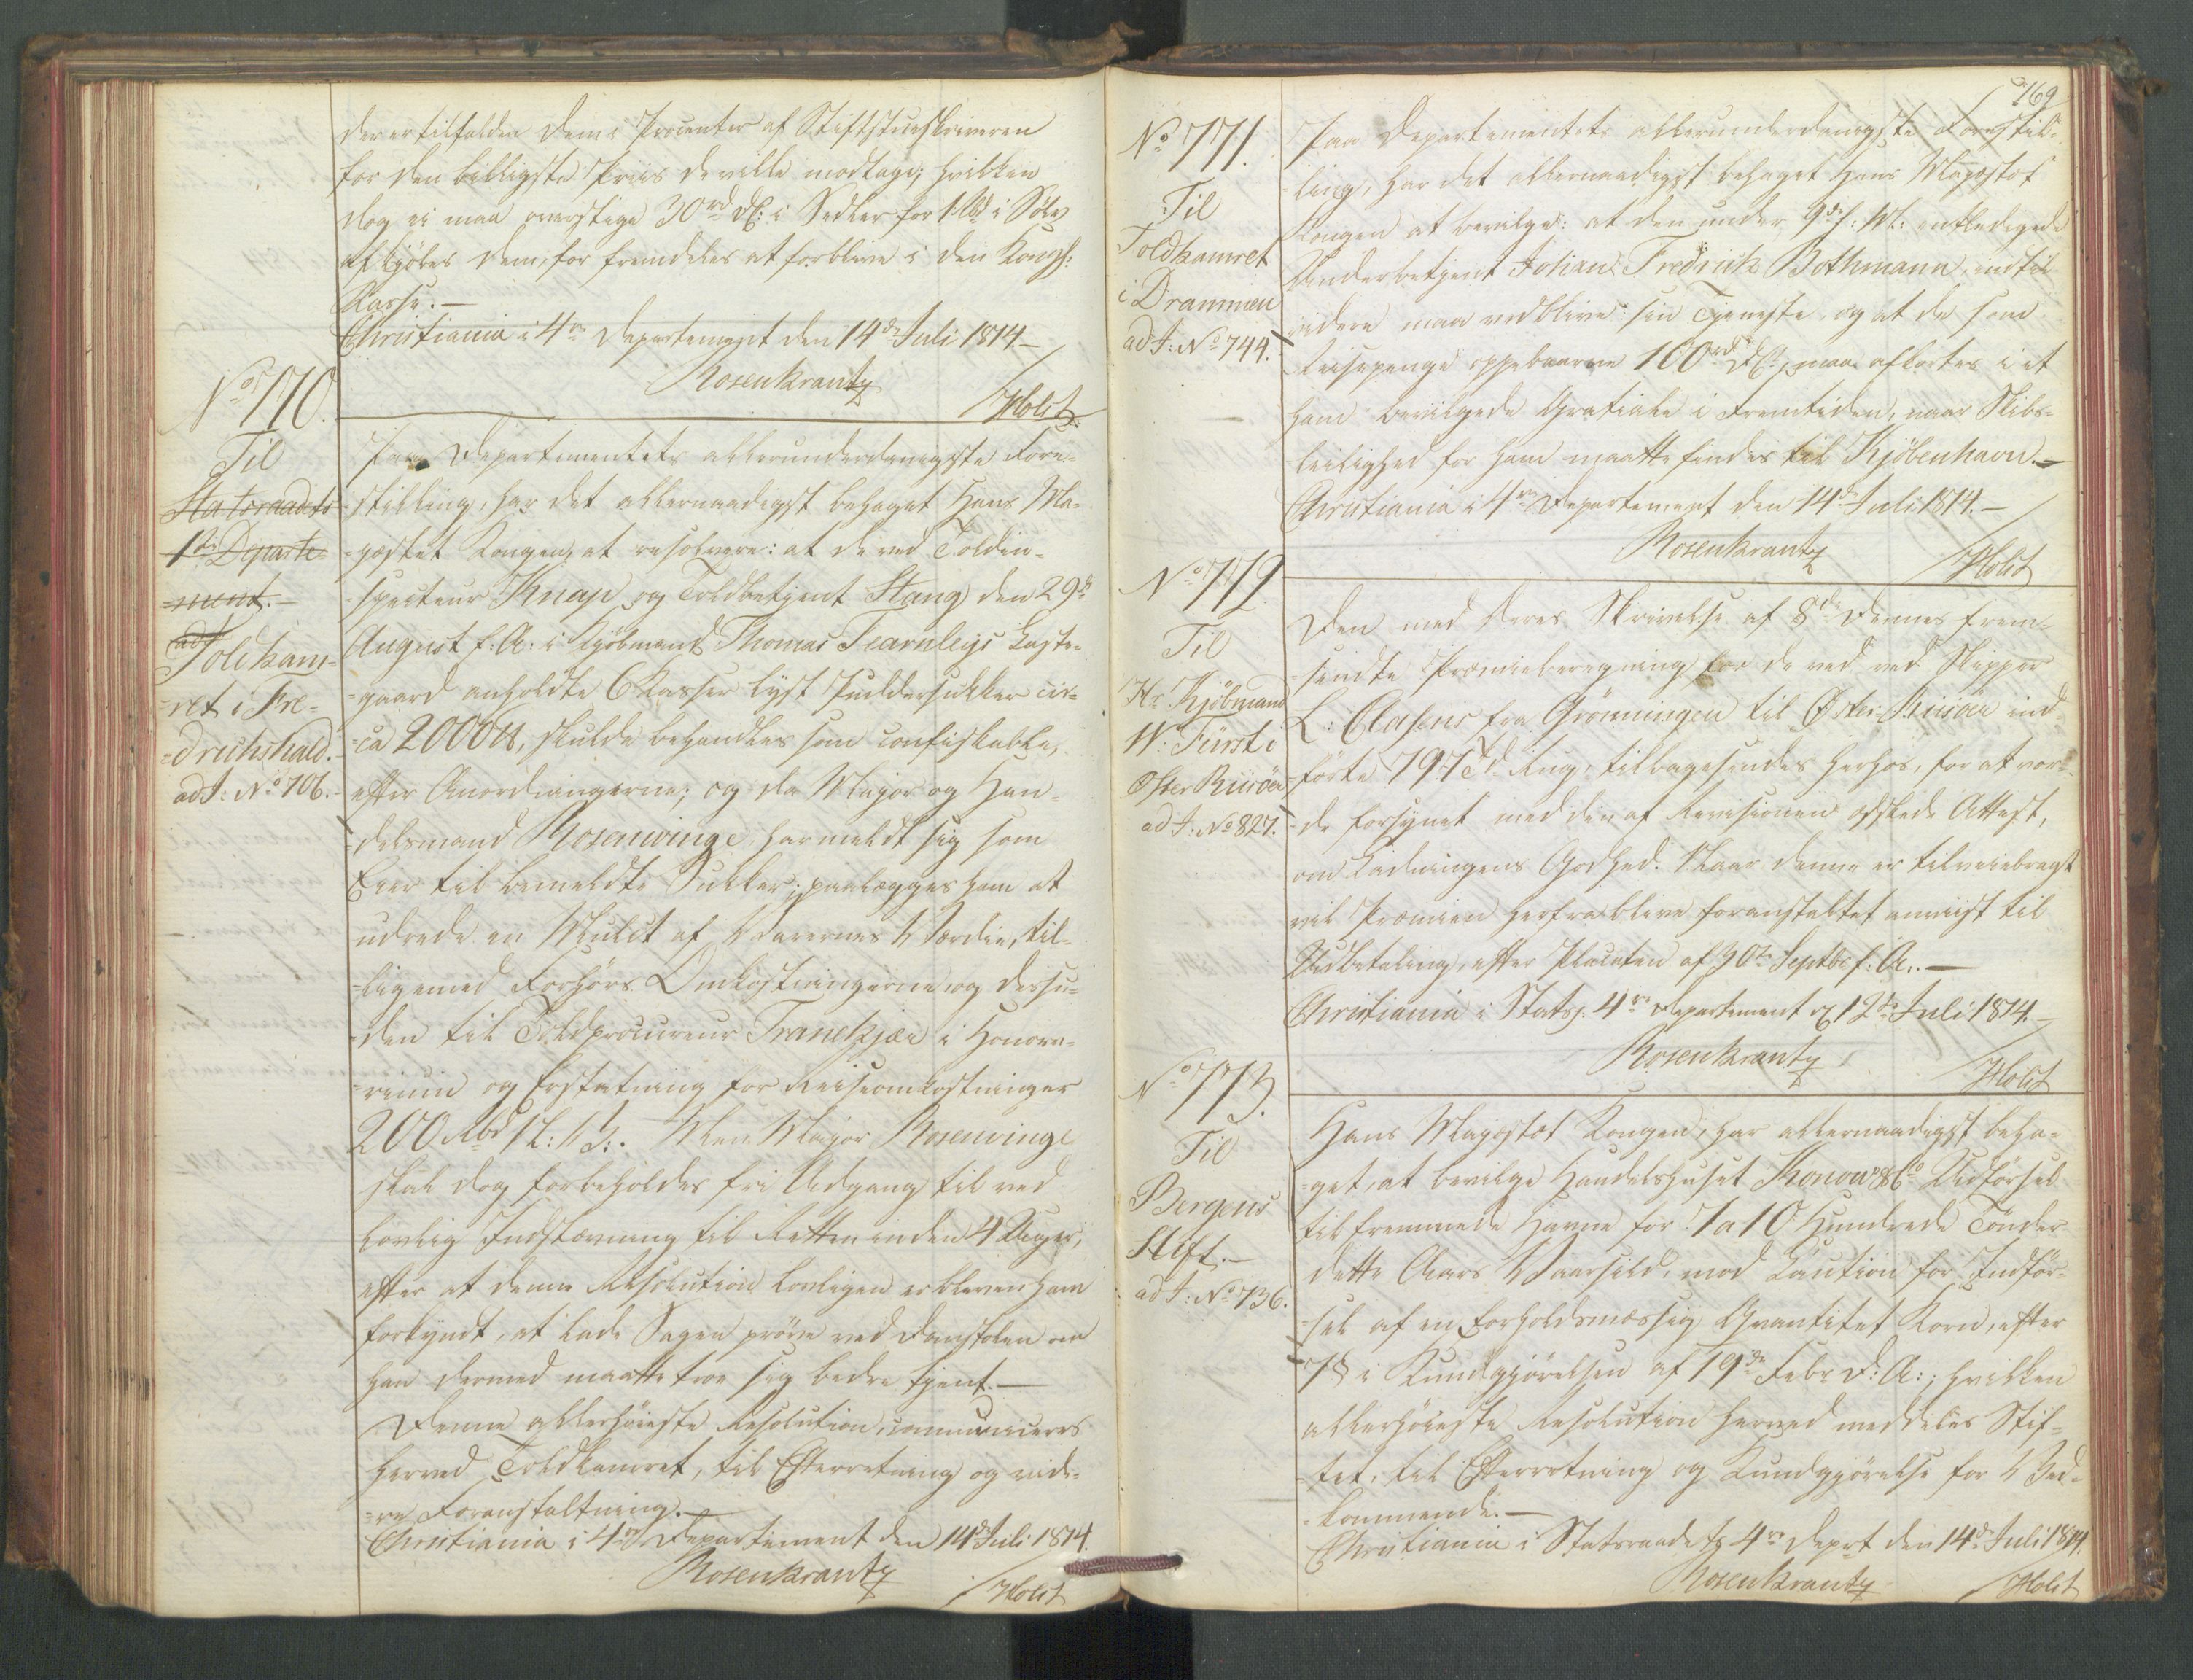 der er tilfalden dem i Procenter af Stiftstueskriveren
for den billigste Priis de ville modtage; hvilken
dog ei maa overstige 30 rd DC: i Sedler for 1 Rbd i Sölv
afkjöbes dem, for fremdeles at forblive i den Kongl:
Kasse.—
Christiania i 4re Departement den 14de Juli 1814.—
Rosenkrantz
/Holst
No 770.
Til
Statsraadets
1ste Departe-
-ment.—
Toldkam-
-ret i Fre-
-drichshald.
ad J: No 706.
Paa Departementets allerunderdanigste Fore-
-stilling, har det allernaadigst behaget Hans Ma-
-jestet Kongen, at resolvere: at de ved Toldin-
-specteur Knap og Toldbetjent Stang den 29de
August f. A. i Kjöbmand Thomas Fearnleys Laste-
-gaard anholdte 6 Kasser lyst Puddersukker cir-
-ca 2000 ℔, skulde behandles som confiskable,
efter Anordningerne; og da Major og Han-
-delsmand Rosenvinge har meldt sig som
Eier til bemeldte Sukker; paalægges ham at
udrede en Mulct af Varernes Værdie, til-
-ligemed Forhörs Omkostningerne og desfu-
-den til Toldprocureur Tranekjær i Honora-
-rium og Erstatning for Reiseomkostninger
200 Rbd N: V:. Men Major Rosenvinge
skal dog forbeholdes fri Adgang til ved
lovlig Indstævning til Retten inden 4 Uger,
efter at denne Resolution lovligen er bleven ham
forkyndt, at lade Sagen pröve ved Domstolen om
han dermed maatte troe sig bedre tjent.—
Denne allerhöieste Resolution communiceres
herved Toldkamret, til Efterretning og vide-
-re Foranstaltning.—
Christiania i 4re Departement den 14de Juli 1814.
Rosenkrantz
/Holst
169
No 771.
Til
Toldkamret
i Drammen
ad J: No 744.
Paa Departementets allerunderdanigste Forestil-
-ling, har det allernaadigst behaget Hans Majestet
Kongen at bevilge: at den under 9de f: M: entledigede
Underbetjent Johan Fredrick Bothmann, indtil
videre maa vedblive sin Tjeneste, og at de som
Reisepenge oppebaarne 100 rd DC, maa afkortes i et
ham bevilgede Gratiale i Fremtiden, naar Skibs-
leilighed for ham maatte findes til Kjöbenhavn.—
Christiania i 4re Departement den 14de Juli 1814.—
Rosenkrantz
/Holst
No 772.
Til
Hr Kjöbmand
N: Fürst i
Öster Riisöer
ad J: No 827.
Den med Deres Skrivelse af 8de dennes frem-
sendte Præmieberegning for de ved Skipper
L: Clasens fra Grönningen til Öster-Riisöer ind-
-förte Rug, tilbagesendes herhos, for at vor-
-de forsynet med den af Revisionen Attest,
om Ladningens Godhed. Naar denne er tilveiebragt
vil Præmien herfra blive foranstaltet anviist til
Udbetaling, efter Placaten af 30te Septbr f: A.—
Christiania i Stats: 4re Departement d 12te Juli 1814.—
Rosenkrantz
/Holst
No 773.
Til
Bergens
Stift.—
ad J: No 736.
Hans Majestæt Kongen, har allernaadigst beha-
-get, at bevilge Handelshuset Konow & Co Udförsel
til fremmede Havne for 1 a 10 Hundrede Tönder
dette Aars Vaarsild, mod Caution for Indför-
-sel af en forholdsmæssig Qvantitet Korn, efter
7 § i Kundgjörelsen af 19de Febr d: A:; hvilken
allerhöieste Resolution herved meddeles Stif-
-tet, til Efterretning og Kundgjörelse for Ved-
-kommende.—
Christiania i Statsraadets 4re Depart den 14de Juli 1814.
Rosenkrantz
/Holst